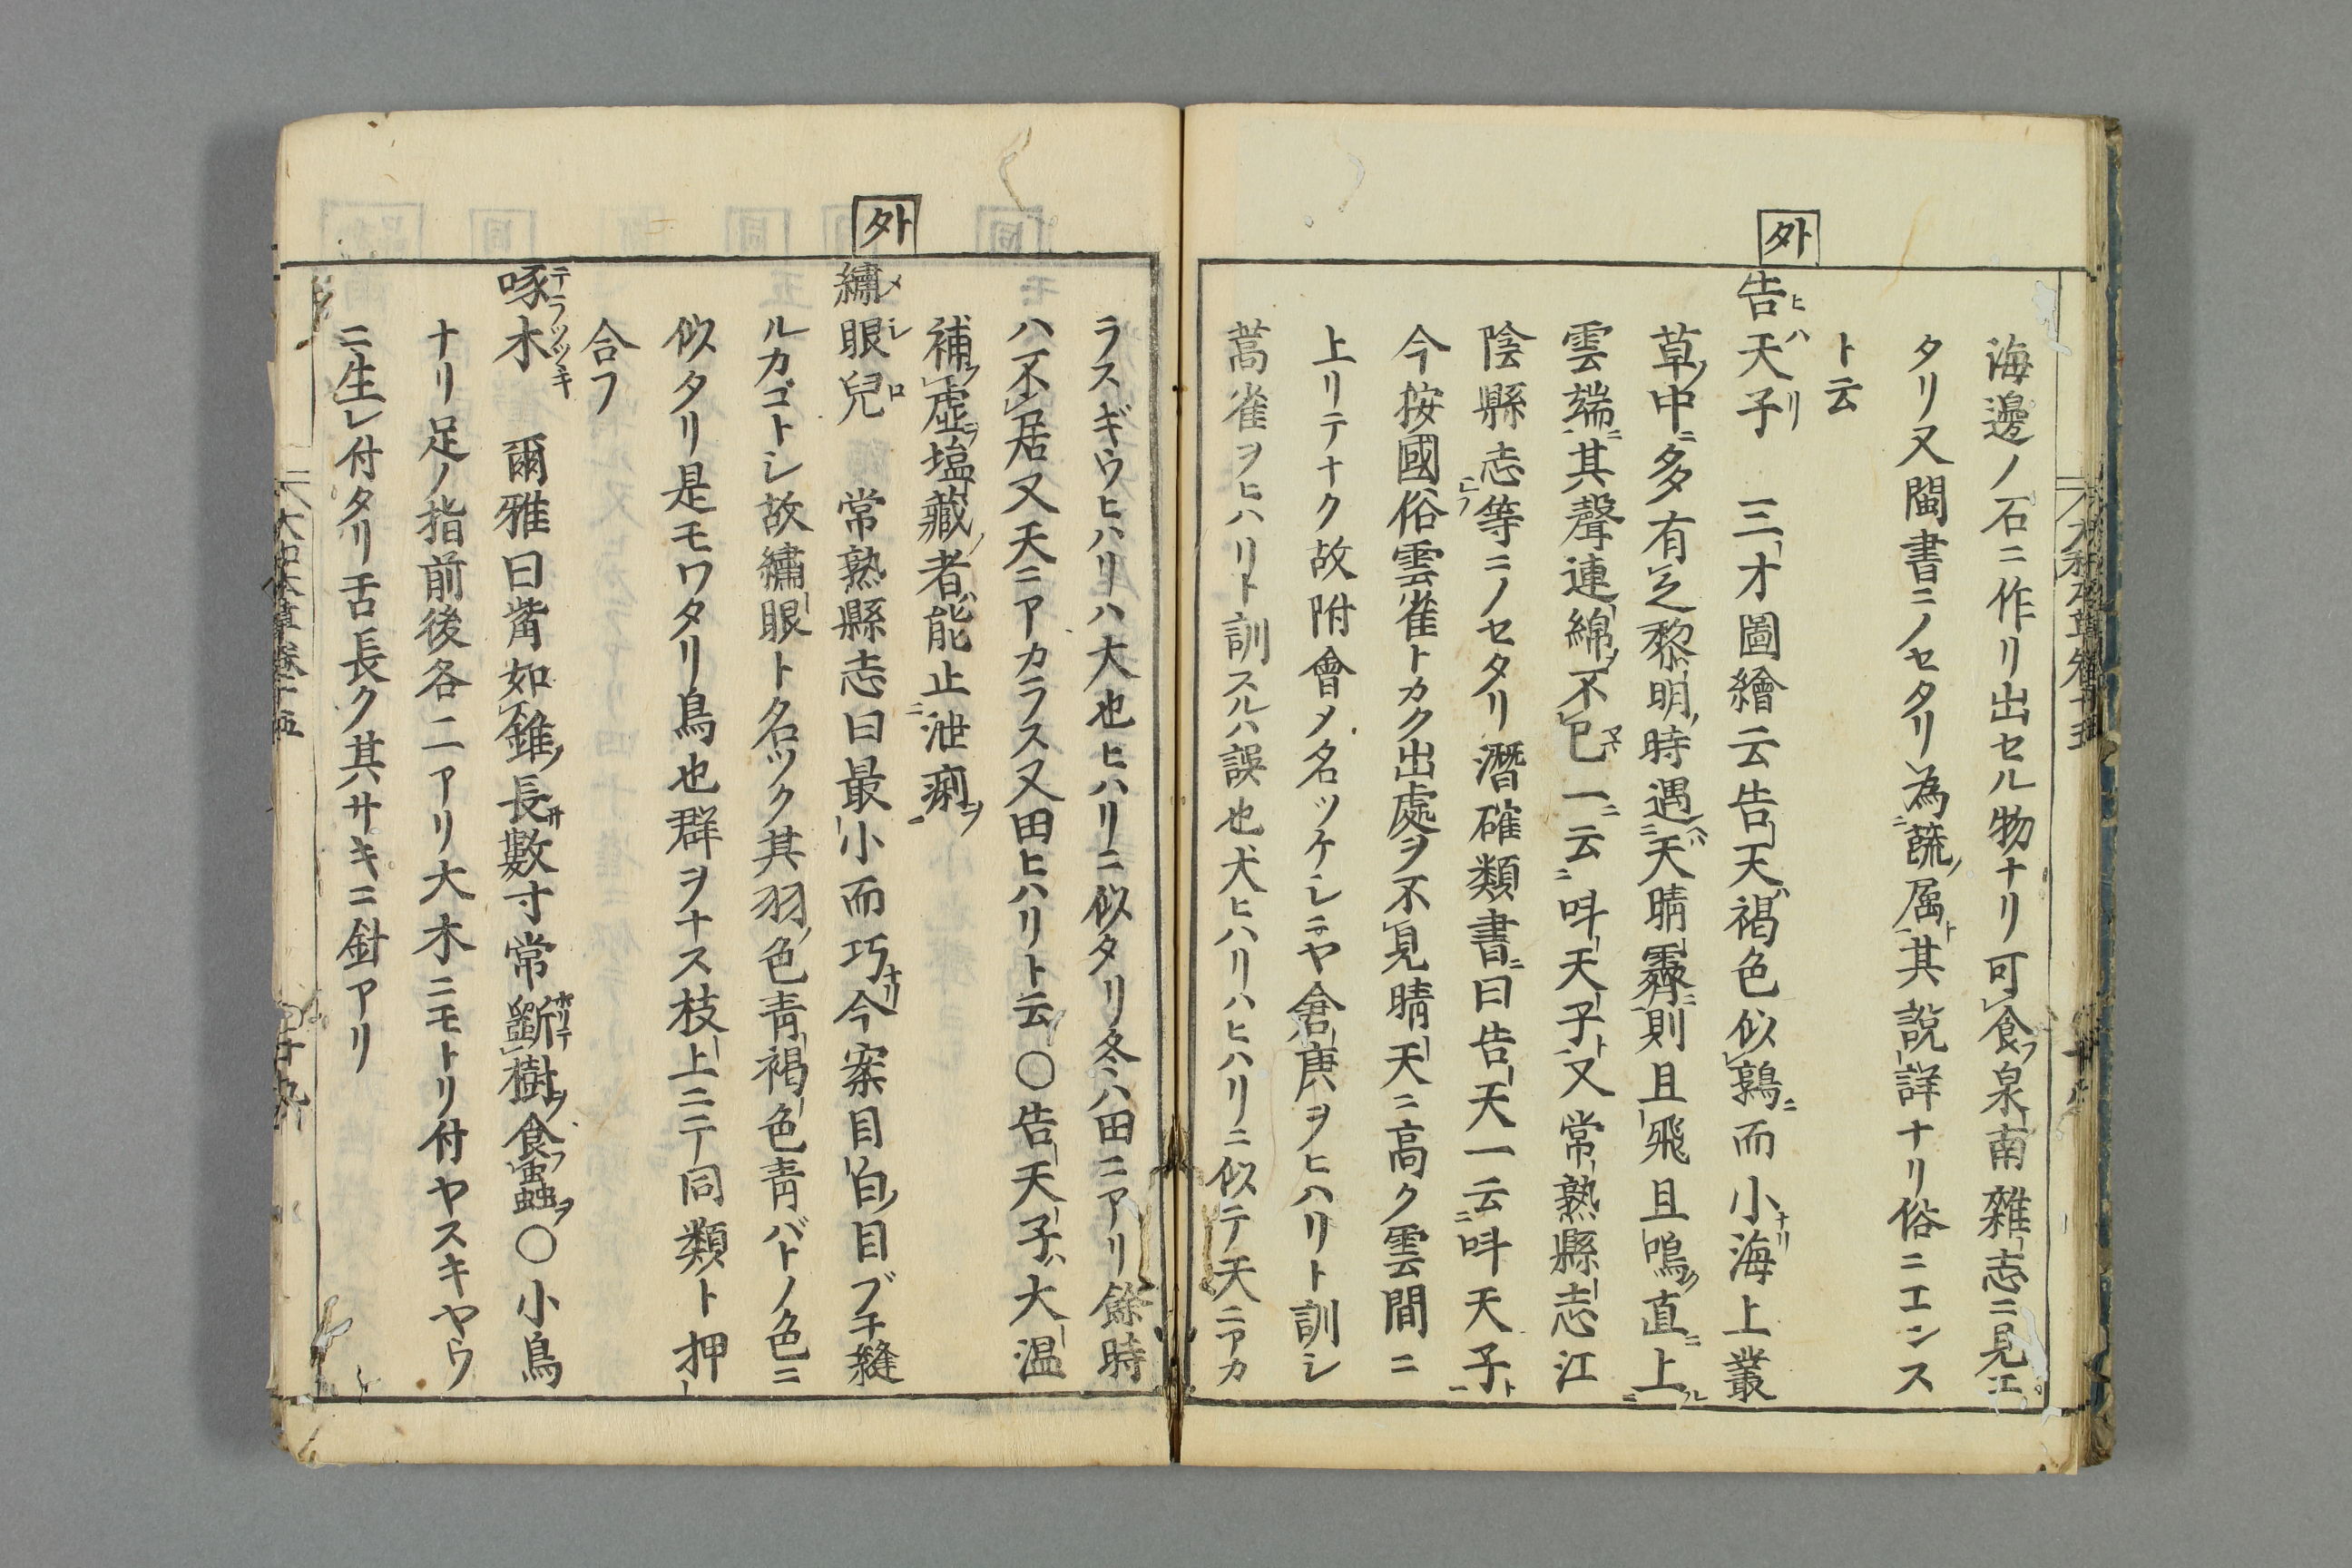 海邊ノ石ニ作リ出セル物ナリ可食フ泉南雜志ニ見エ
タリ又閩書ニノセタリ為蔬屬ト其說詳ナリ俗ニエンス
ト云
外
告天子 三才圖繪云告天ハ褐色似鶉ニ而小ナリ海上叢
ヒハリ
草ノ中ニ多有之黎明ノ時遇ヘハ天晴霽ニ則且飛且鳴ク直ニ上ル
雲端ニ其聲連綿ノ不已マ一ニ云叫天子ト又常熟縣志江
陰縣志等ニノセタリ潛確類書ニ曰告天一云叫天子ト
今按國俗雲雀トカク出處ヲ不見晴天ニ高ク雲間ニ
上リテナク故附會メ名ツケシニヤ倉庚ヲヒハリト訓シ
蒿雀ヲヒハリト訓スルハ誤也犬ヒハリハヒハリニ似テ天ニアカ
ラスギウヒハリハ大也ヒハリニ似タリ冬ハ田ニアリ餘時
ハ不居又天ニアカラス又田ヒハリト云〇告天子ハ大温
補フ虛ヲ塩藏ノ者ハ能止泄痢ヲ
外
繡眼兒 常熟縣志曰最小而巧ナリ今案目白ノ目ブチ縫
メシロ
ルカゴトシ故繡眼ト名ツク其羽ノ色青褐色青バトノ色ニ
似タリ是モワタリ鳥也群ヲナス枝上ニテ同類ト押
合フ
啄木 爾雅曰觜如錐ノ長サ數寸常斵樹ヲ食フ蟲ヲ〇小鳥
テラツツキ
ナリ足ノ指前後各二アリ大木ニモトリ付ヤスキヤウ
ニ生レ付タリ舌長ク其サキニ針アリ
大和本草卷十五